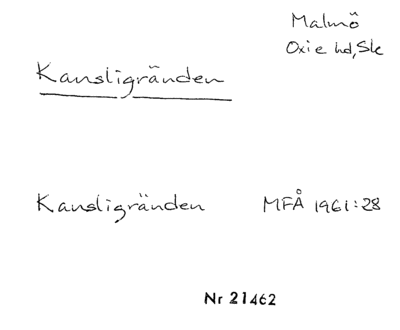 Malmö
Oxie hd, Sk
Kansligränden
Kansligränden MFÅ 1961:28
Nr 21462